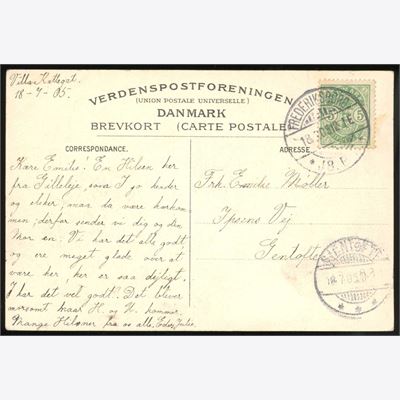 Villa Kattegat.
18-7-05.
VERDENSPOSTFORENINGEN
(UNION POSTALE UNIVERSELLE)
DANMARK
BREVKORT (CARTE POSTALE)
CORRESPONDANCE.
ADRESSE.
Kære Emilie! En Hilsen her
fra Gilleleje, som I jo kender
og elsker; maa da være
; derfor sender vi dig og den
Mor en: Vi har det alle godt
og ere meget glade over at
være her, her er saa dejligt.
I har det vel godt? Det bliver
morsomt naar H. og H. kommer.
Mange Hilsner fra os alle,
Frk. Emilie Møller
Ipsens Vej
Gentofte
FREDERIKSBORG
GJENTOFTE
5